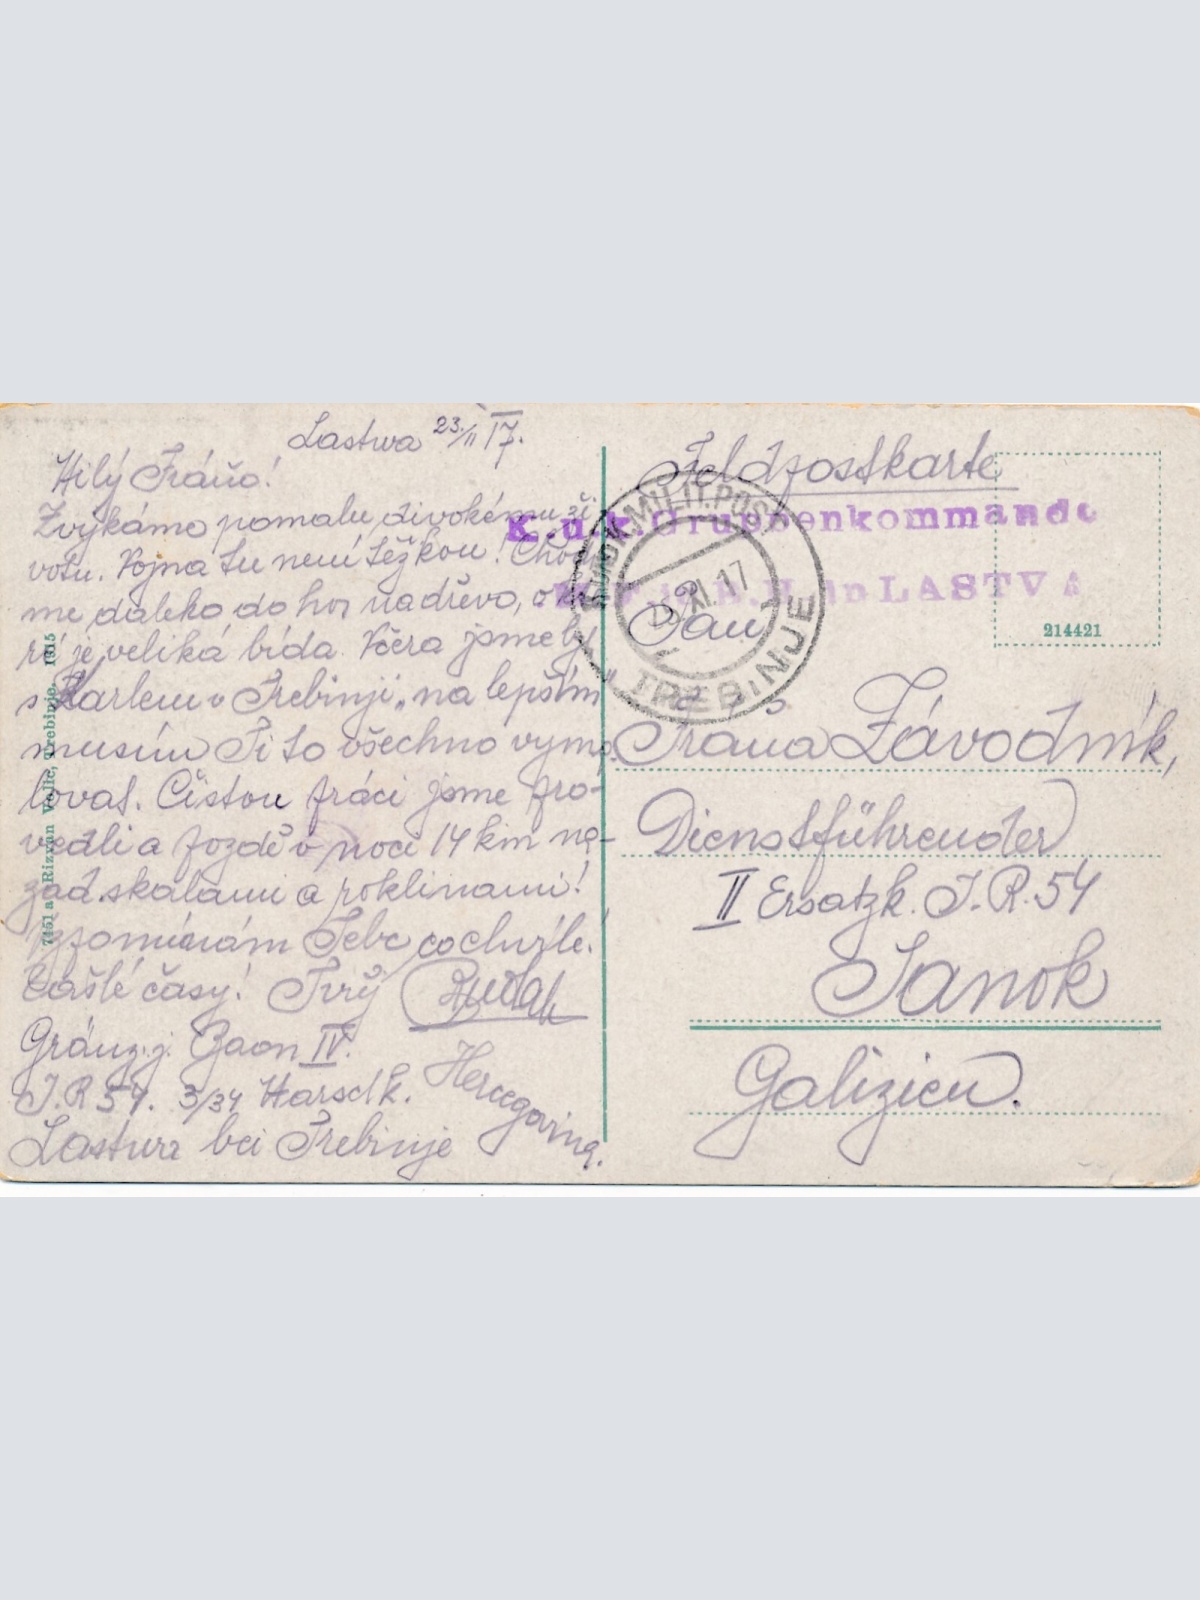 Lastwa 23./11 17.
Milý Fráňo!
Zvykáme pomalu divokému ži
votu. Vojna tu není těžkou! Chodí
me daleko do hor na dřevo, o kte
ré je veliká bída. Včera jsme by
s Karlem v Trebinji „na lepším"
musím Ti to všechno vyma
lovat. Čistou práci jsme pro-
vedli a pozdě v noci 14 km na-
zad skalami a roklinami!
Vzpomínám Tebe co chvíle.
Zašlé časy! Tvůj
Gränzj. Baon IV.
I.R 54. 3/34 Marschk. Hercegovina.
Lastwa bei Trebinje
7451 a. Rizvan Velic, Trebinje, 1915
Feldpostkarte
K.u.k. Gruppenkommando
in LASTVA
K.UND K. MILIT. POST
XI.17
TREBINJE
214421
Pan
Fráňa Závodník,
Dienstführender
II Ersatzk. I.R. 54
Sanok
Galizien.